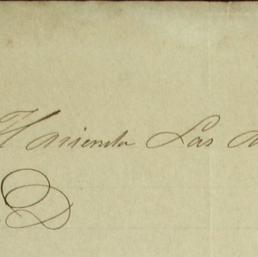 Hacienda Las
D